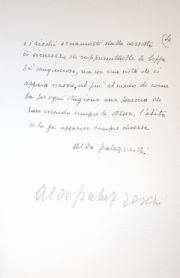 e i ricchi ornamenti dalla cassetta
di sicurezza che rappresentasse la beffa
più sanguinosa, ma con una veste che ci
appaia nuova, od più al meno di come
fa per ogni stagione una persona che
pure essendo sempre la stessa, l'abito
ce la fa apparire sempre diversa
aldo palazzeschi
aldo palazzeschi